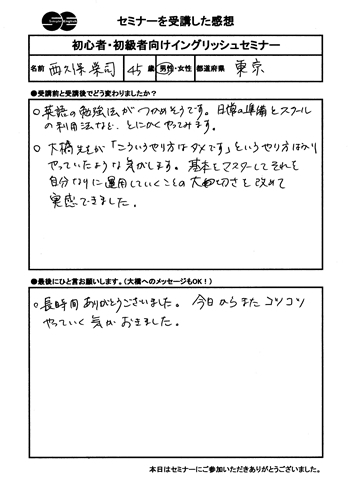 セミナーを受講した感想
初心者・初級者向けイングリッシュセミナー
名前 西久保栄司 45歳 男性・女性 都道府県 東京
●受講前と受講後でどう変わりましたか?
○英語の勉強法がつかめそうです。日常の準備とスクール
の利用法など、とにかくやってみます。
○大橋先生が「こういうやり方はダメです」というやり方ばかり
やっていたような気がします。基本をマスターしてそれを
自分なりに運用していくことの大切さを改めて
実感できました。
●最後にひと言お願いします。(大橋へのメッセージもOK!)
○長時間ありがとうございました。今日からまたコツコツ
やっていく気がおきました。
本日はセミナーにご参加いただきありがとうございました。